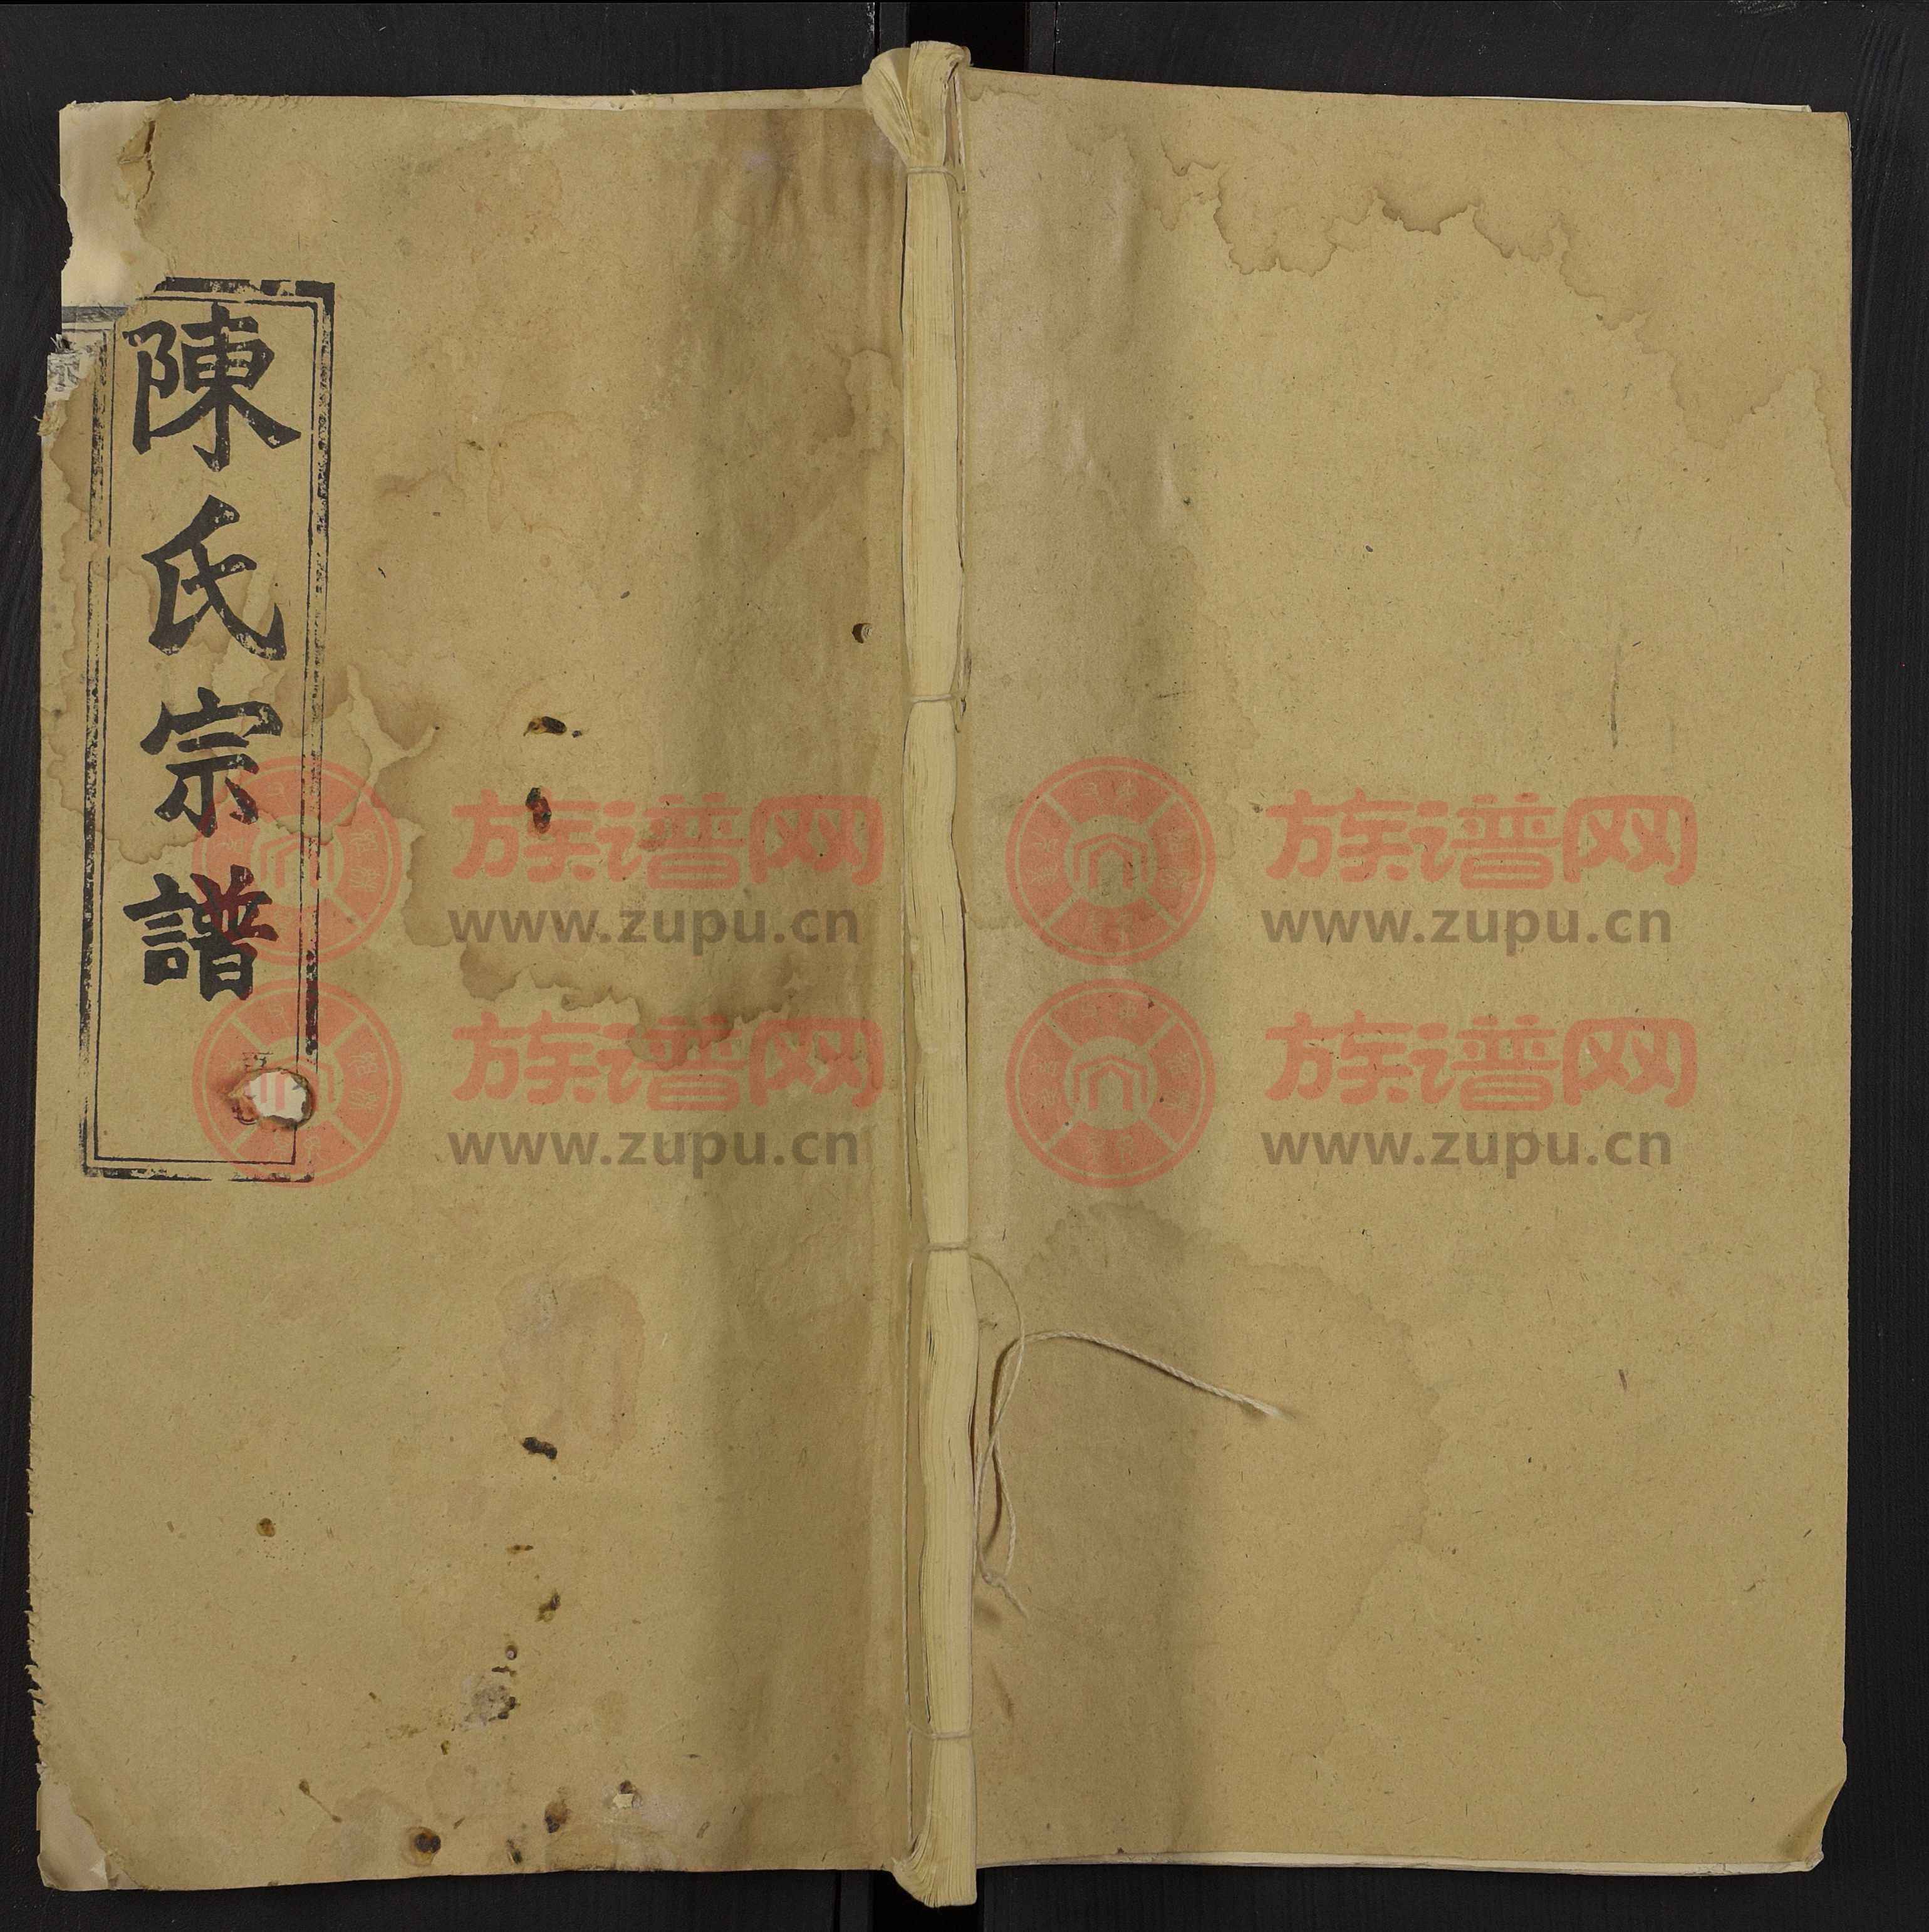 陳氏宗譜
族谱网
www.zupu.cn
族谱网
www.zupu.cn
族谱网
www.zupu.cn
族谱网
www.zupu.cn